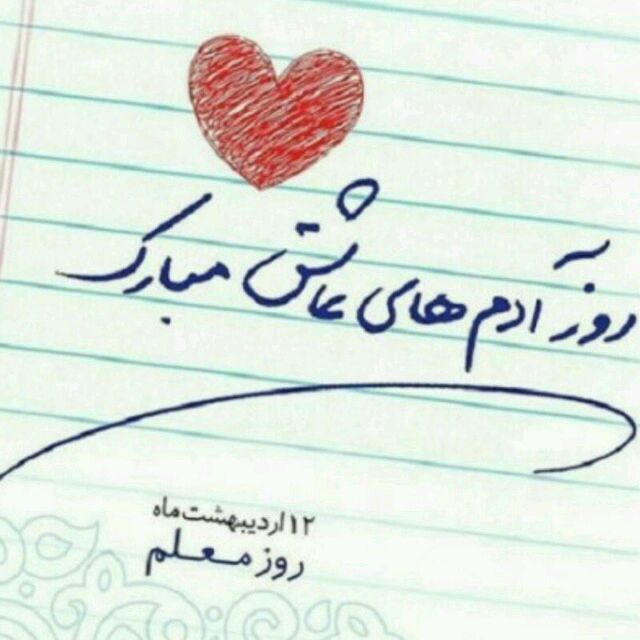 روز آدم های عاشق مبارک
۱۲ اردیبهشت ماه
روز معلم